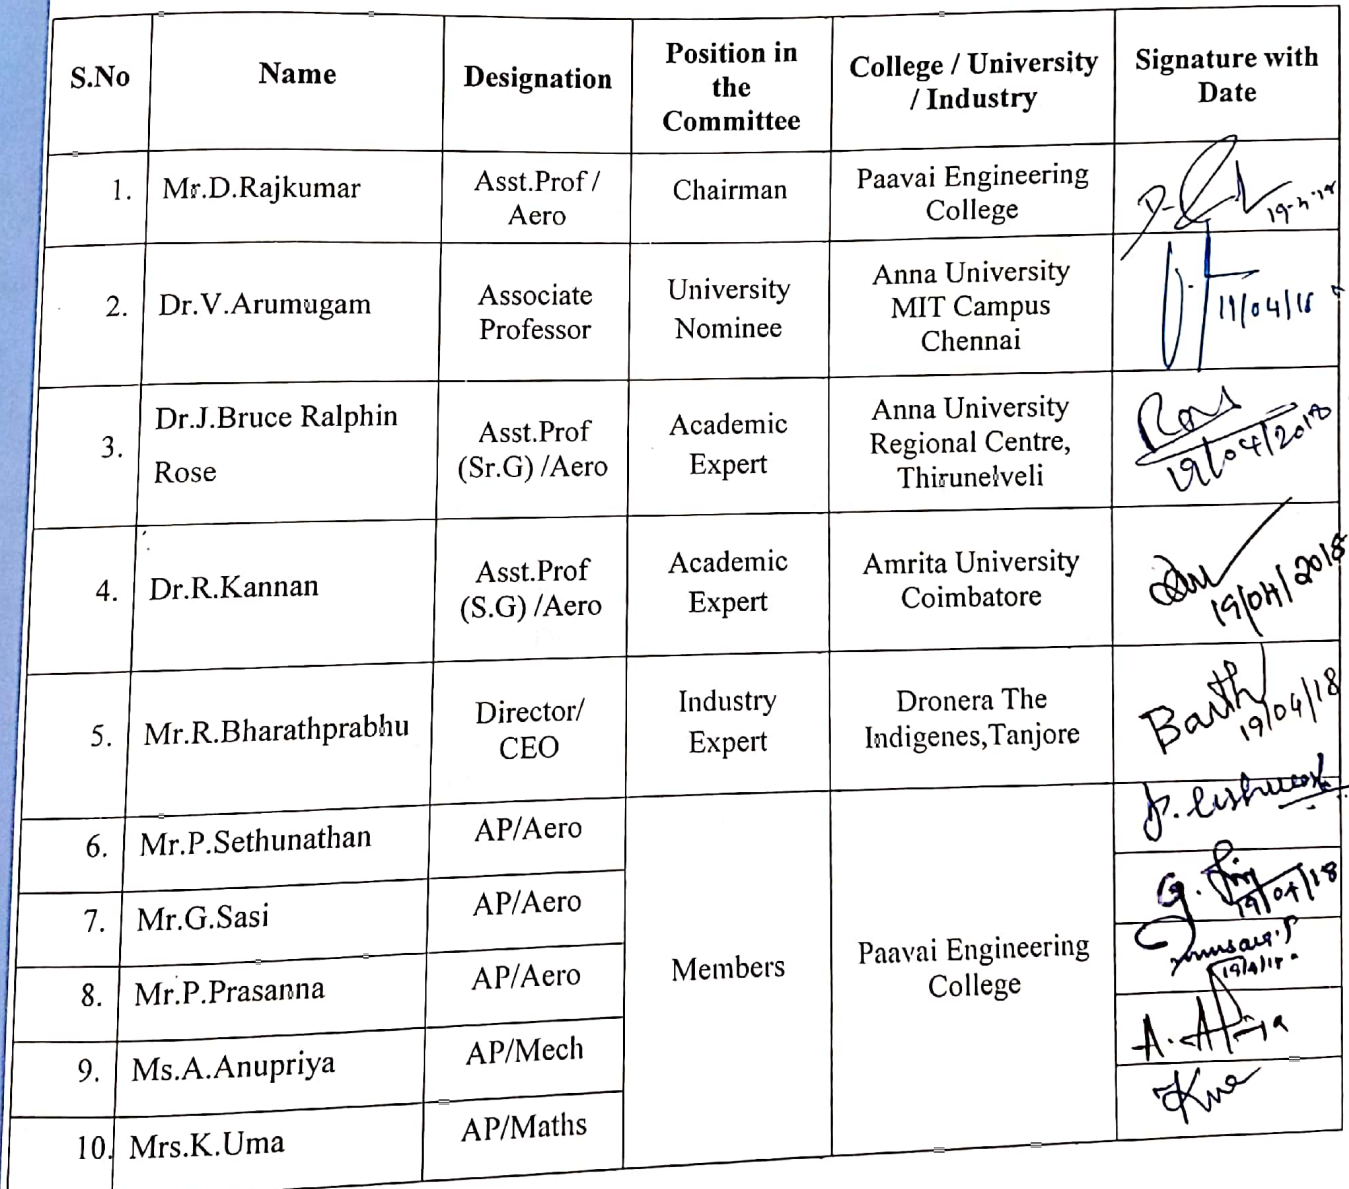 S.No
Name
Designation
Position in
the
Committee
College / University
/ Industry
Signature with
Date
1.
Mr.D.Rajkumar
Asst.Prof /
Aero
Chairman
Paavai Engineering
College
2.
Dr.V.Arumugam
Associate
Professor
University
Nominee
Anna University
MIT Campus
Chennai
3.
Dr.J.Bruce Ralphin
Rose
Asst.Prof
(Sr.G) /Aero
Academic
Expert
Anna University
Regional Centre,
Thirunelveli
19/04/2018
4.
Dr.R.Kannan
Asst.Prof
(S.G) /Aero
Academic
Expert
Amrita University
Coimbatore
19/04/2018
5.
Mr.R.Bharathprabhu
Director/
CEO
Industry
Expert
Dronera The
Indigenes,Tanjore
19/04/18
6.
Mr.P.Sethunathan
AP/Aero
Members
Paavai Engineering
College
7.
Mr.G.Sasi
AP/Aero
19/04/18
8.
Mr.P.Prasanna
AP/Aero
9.
Ms.A.Anupriya
AP/Mech
10.
Mrs.K.Uma
AP/Maths